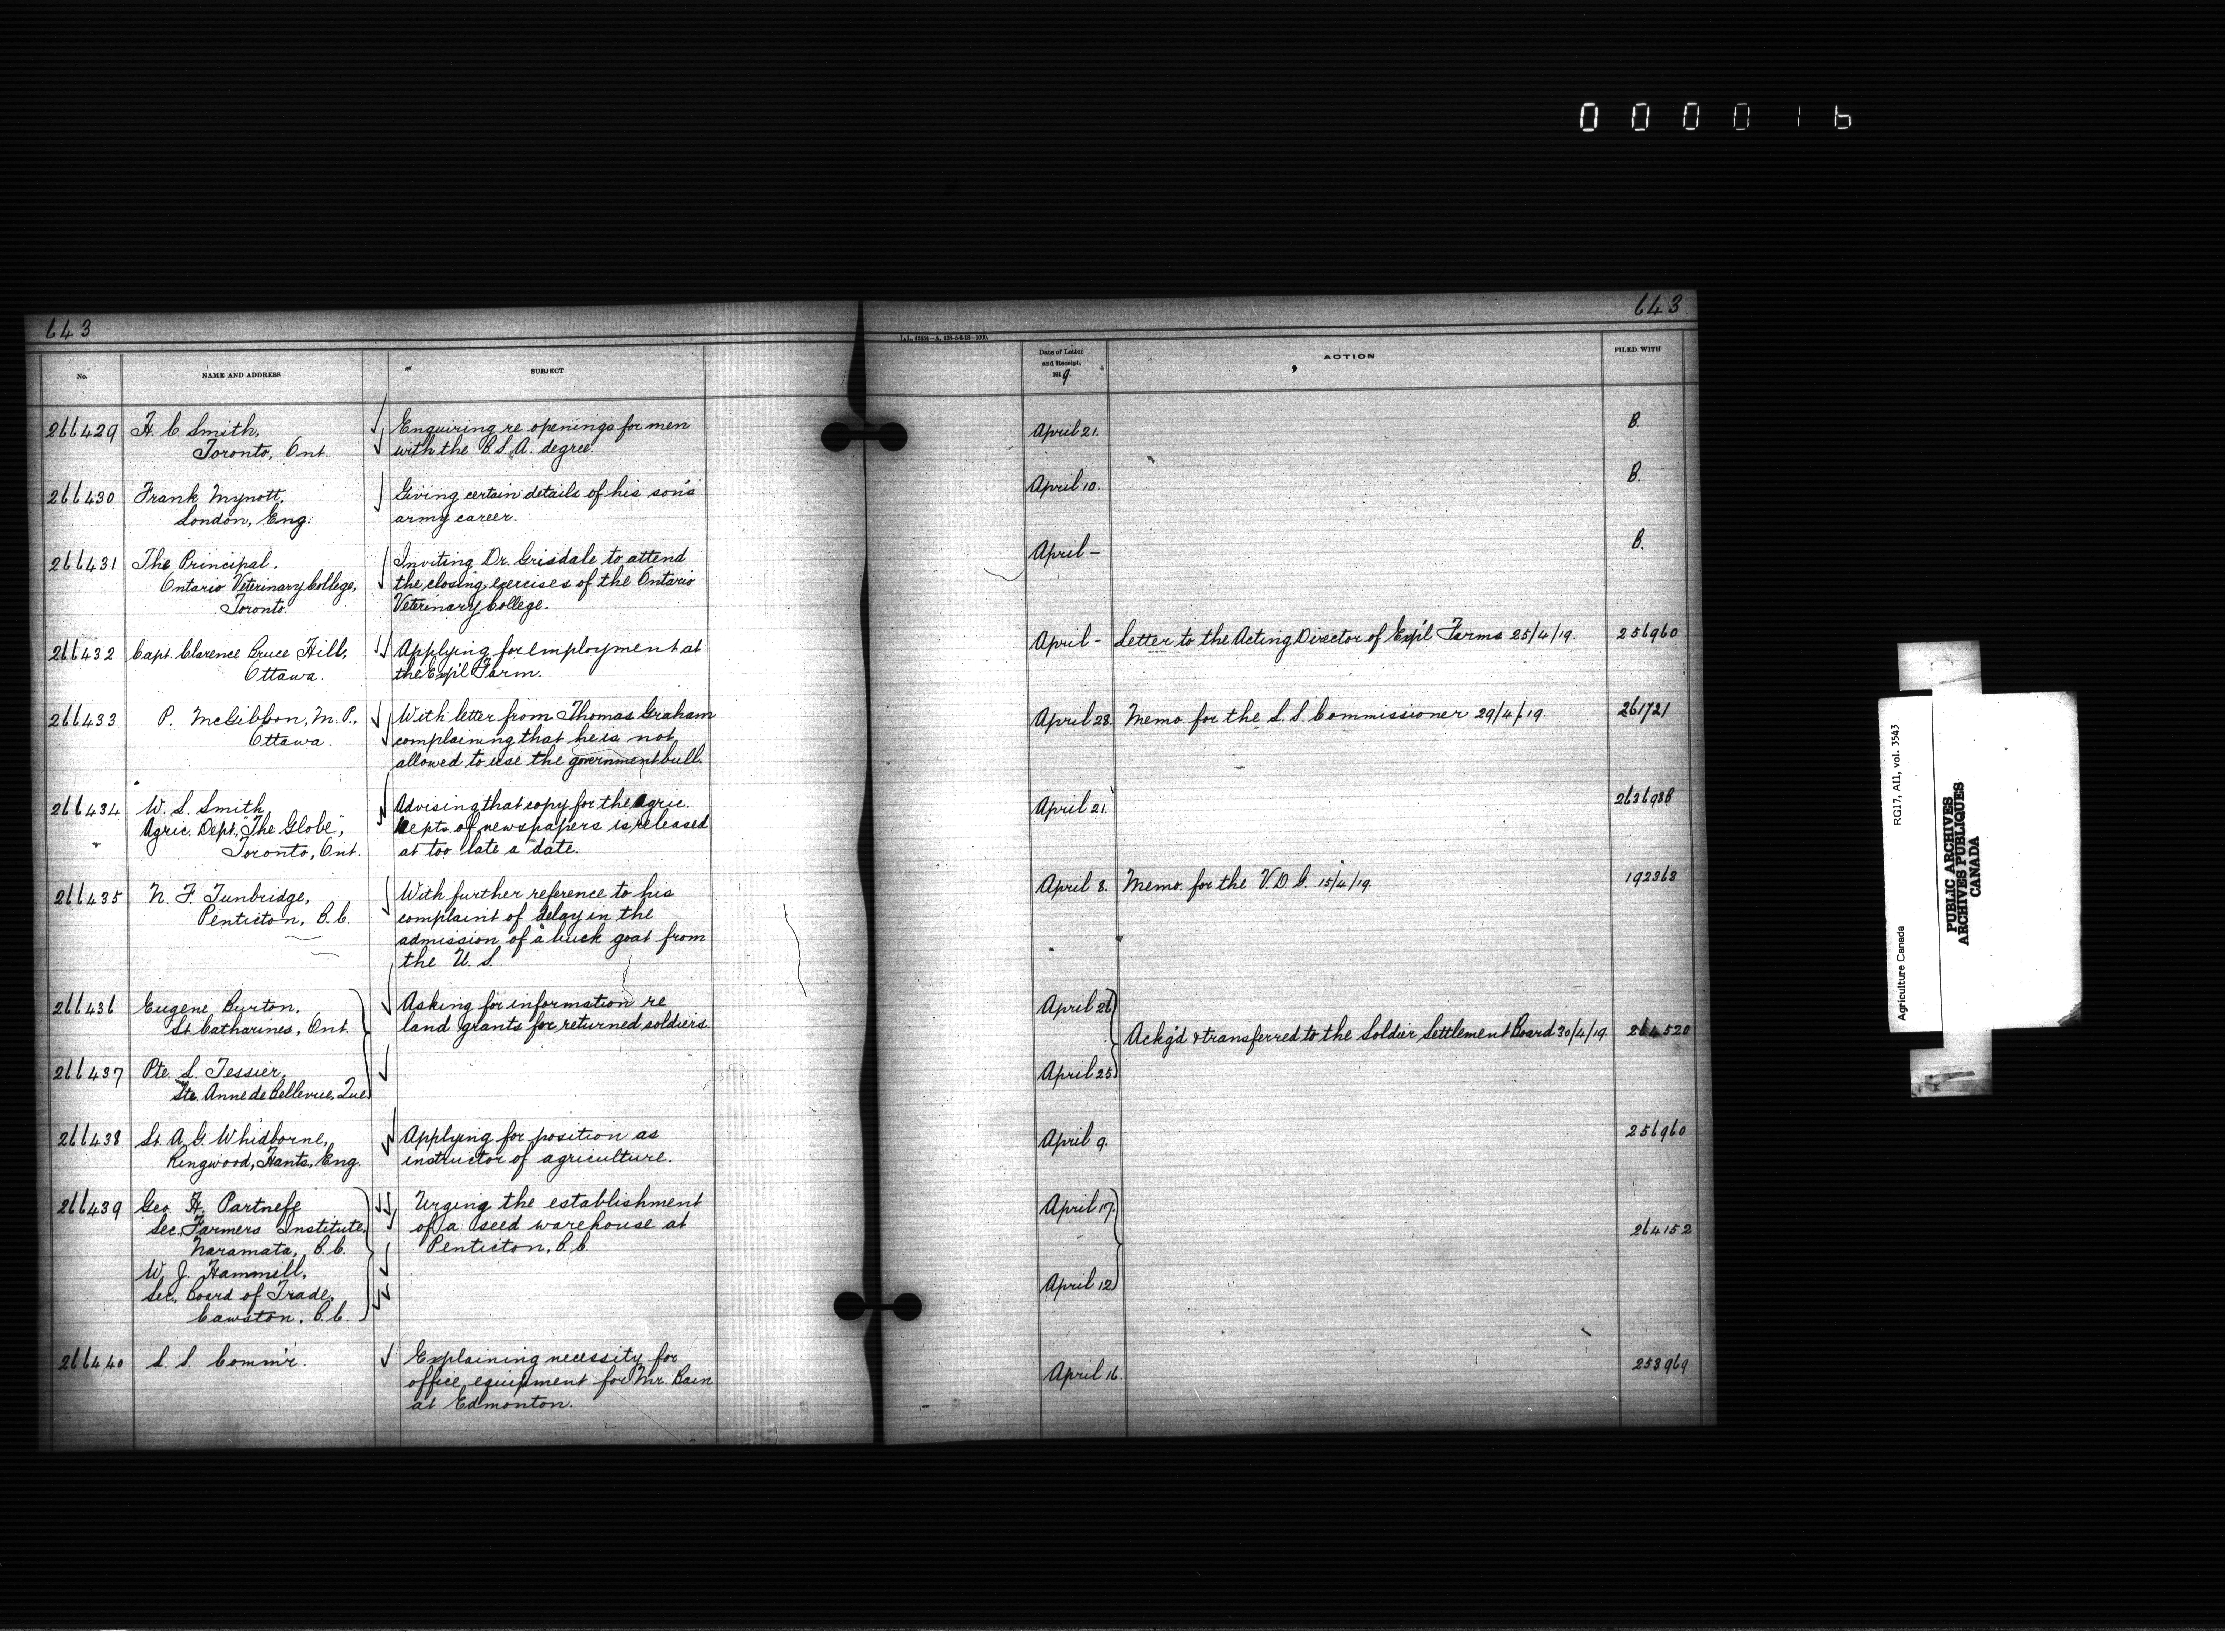 000016
643
643
L.L. 41454-A. 128-5-6-18-1000.
No.
NAME AND ADDRESS
SUBJECT
Date of Letter and Receipt, 1919.
ACTION
FILED WITH
266429
H. C. Smith,
Toronto, Ont.
Enquiring re openings for men
with the B.S.A. degree.
April 21.
B.
266430
Frank Mynott,
London, Eng.
Giving certain details of his son's
army career.
April 10.
B.
266431
The Principal,
Ontario Veterinary College,
Toronto.
Inviting Dr. Grisdale to attend
the closing exercises of the Ontario
Veterinary College.
April -
B.
266432
Capt. Clarence Bruce Hill,
Ottawa.
Applying for employment at
the Exp'l Farm.
April -
Letter to the Acting Director of Exp'l Farms 25/4/19.
256960
266433
P. McGibbon, M.P.,
Ottawa.
With letter from Thomas Graham
complaining that he is not
allowed to use the government bull.
April 28.
Memo. for the L.S. Commissioner 29/4/19.
261721
266434
W. S. Smith,
Agric. Dept., "The Globe",
Toronto, Ont.
Advising that copy for the Agric.
Depts. of newspapers is released
at too late a date.
April 21.
263698B
266435
N. F. Tunbridge,
Penticton, B.C.
With further reference to his
complaint of delay in the
admission of a buck goat from
the U.S.
April 8.
Memo. for the V.D.G. 15/4/19.
192363
266436
Eugene Burton,
St. Catharines, Ont.
Asking for information re
land grants for returned soldiers.
April 26
Ackg'd & transferred to the Soldier Settlement Board 30/4/19.
264520
266437
Pte. L. Tessier,
Ste. Anne de Bellevue, Que.
April 25
266438
Lt. A. G. Whidborne,
Ringwood, Hants, Eng.
Applying for position as
instructor of agriculture.
April 9.
256960
266439
Geo. H. Partneff
Sec. Farmers Institute,
Naramata, B.C.
W. J. Hammell,
Sec. Board of Trade,
Cawston, B.C.
Urging the establishment
of a seed warehouse at
Penticton, B.C.
April 17.
April 12
264152
266440
L. S. Comm'r.
Explaining necessity for
office equipment for Mr. Bain
at Edmonton.
April 16.
253969
Agriculture Canada
RG17, A11, vol. 3543
PUBLIC ARCHIVES
ARCHIVES PUBLIQUES
CANADA